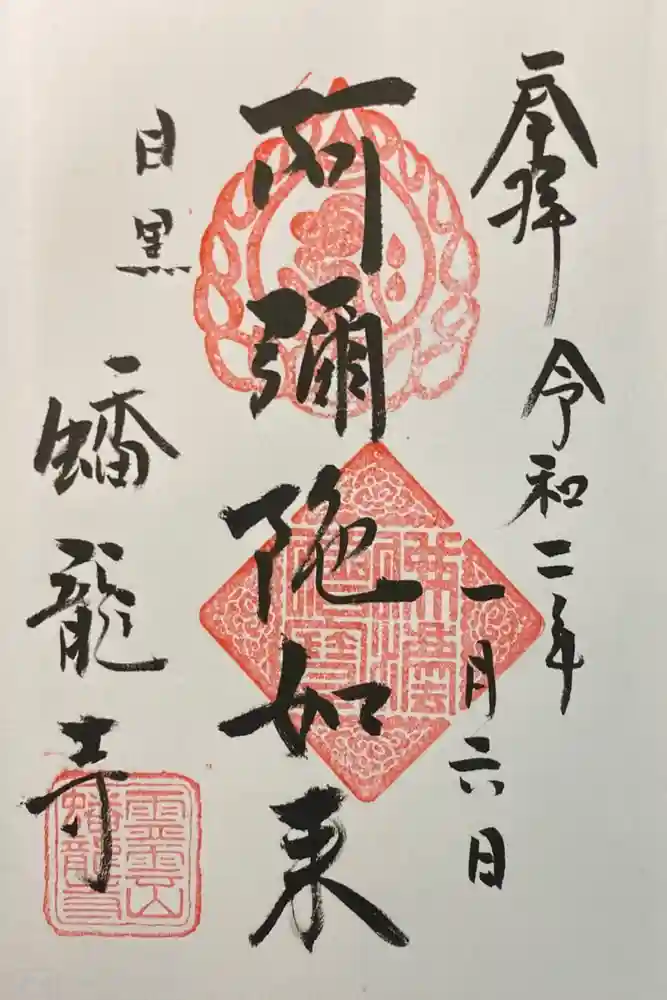 奉拝
令和二年
一月六日
阿彌陀如来
目黒
蟠龍寺
佛法僧寶
霊雲山
蟠龍寺